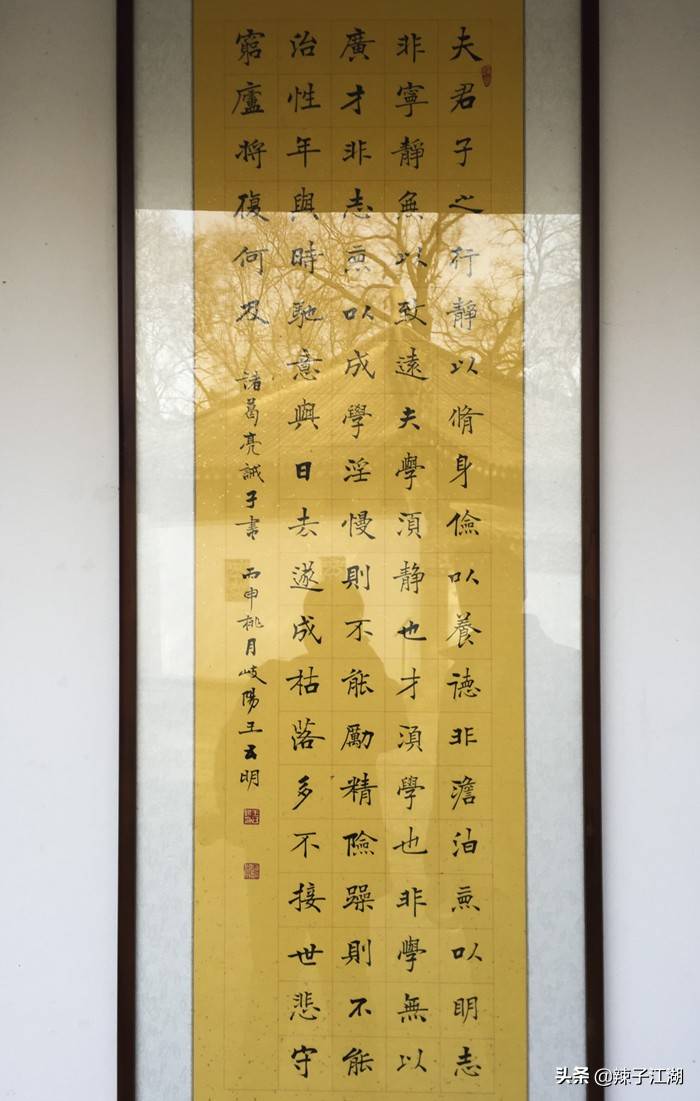 夫君子之行靜以脩身儉以養德非澹泊無以明志
非寧靜無以致遠夫學湏靜也才湏學也非學無以
廣才非志無以成學淫慢則不能勵精險躁則不能
治性年與時馳意與日去遂成枯落多不接世悲守
窮廬將復何及 諸葛亮誡子書 丙申桃月岐陽王云明
头条 @辣子江湖